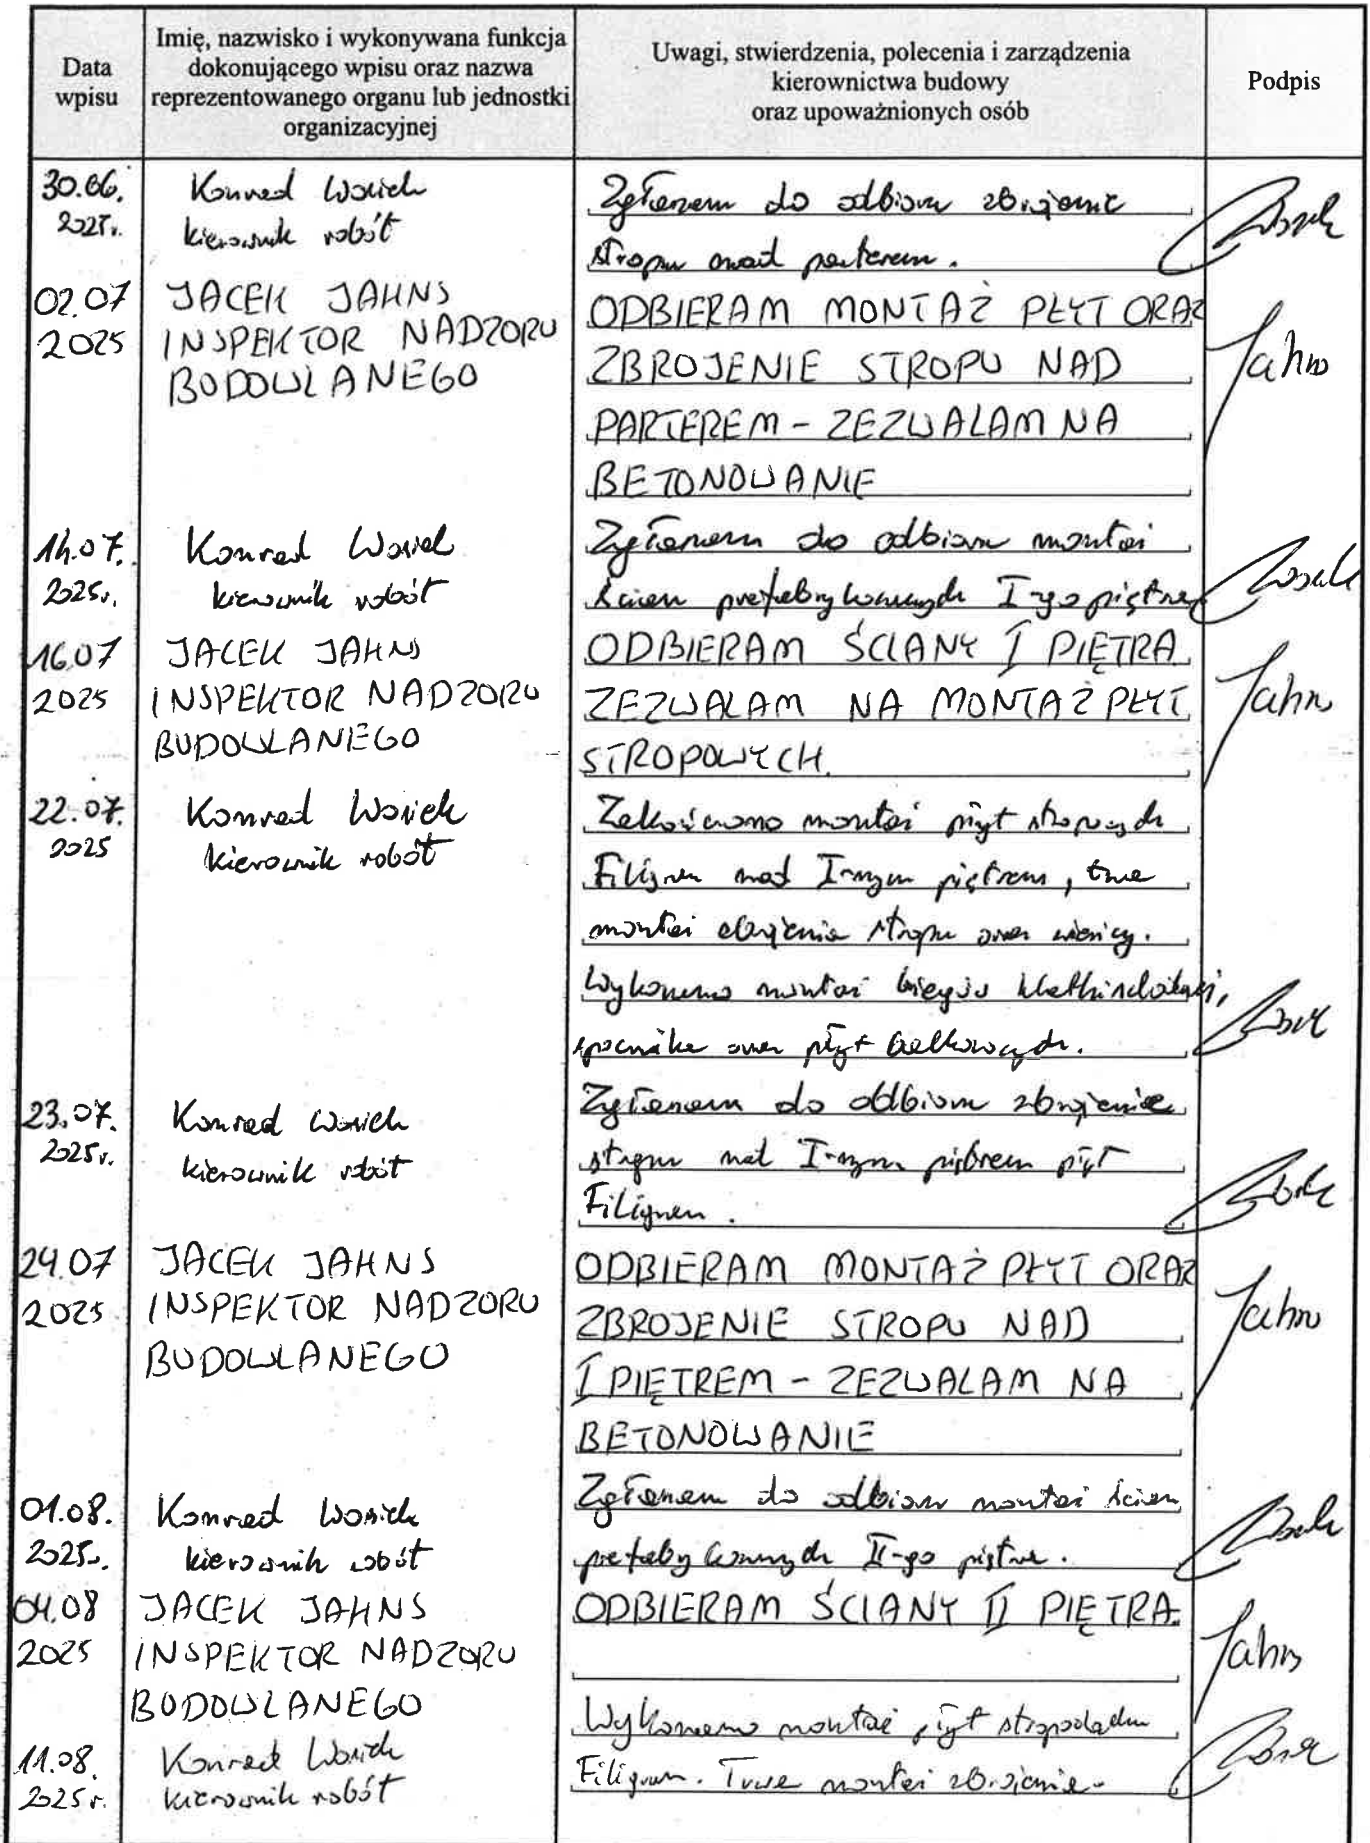 Data wpisu
Imię, nazwisko i wykonywana funkcja
dokonującego wpisu oraz nazwa
reprezentowanego organu lub jednostki
organizacyjnej
Uwagi, stwierdzenia, polecenia i zarządzenia
kierownictwa budowy
oraz upoważnionych osób
Podpis
30.06. Konrad
2025r. kierownik robót
Zgłaszam do odbioru zbrojenie
stropu nad parterem.
02.07 JACEK JAHNS
2025 INSPEKTOR NADZORU
BUDOWLANEGO
ODBIERAM MONTAŻ PŁYT ORAZ
ZBROJENIE STROPU NAD
PARTEREM - ZEZWALAM NA
BETONOWANIE
Jahns
14.07. Konrad
2025r. kierownik robót
Zgłaszam do odbioru montaż
ścian prefabrykowanych I-go piętra
16.07 JACEK JAHNS
2025 INSPEKTOR NADZORU
BUDOWLANEGO
ODBIERAM ŚCIANY I PIĘTRA
ZEZWALAM NA MONTAŻ PŁYT
STROPOWYCH.
Jahns
22.07. Konrad
2025 kierownik robót
Zakończono montaż płyt stropowych
Filigran nad I-szym piętrem, trwa
montaż zbrojenia stropu oraz wieńcy.
Wykonano montaż biegów klatki schodowej,
spocznika oraz płyt balkonowych.
23.07. Konrad
2025r. kierownik robót
Zgłaszam do odbioru zbrojenie
stropu nad I-szym piętrem płyt
Filigran.
24.07 JACEK JAHNS
2025 INSPEKTOR NADZORU
BUDOWLANEGO
ODBIERAM MONTAŻ PŁYT ORAZ
ZBROJENIE STROPU NAD
I PIĘTREM - ZEZWALAM NA
BETONOWANIE
Jahns
01.08. Konrad
2025r. kierownik robót
Zgłaszam do odbioru montaż ścian
prefabrykowanych II-go piętra.
04.08 JACEK JAHNS
2025 INSPEKTOR NADZORU
BUDOWLANEGO
ODBIERAM ŚCIANY II PIĘTRA.
Jahns
11.08. Konrad
2025r. kierownik robót
Wykonano montaż płyt stropodachu
Filigran. Trwa montaż zbrojenia.